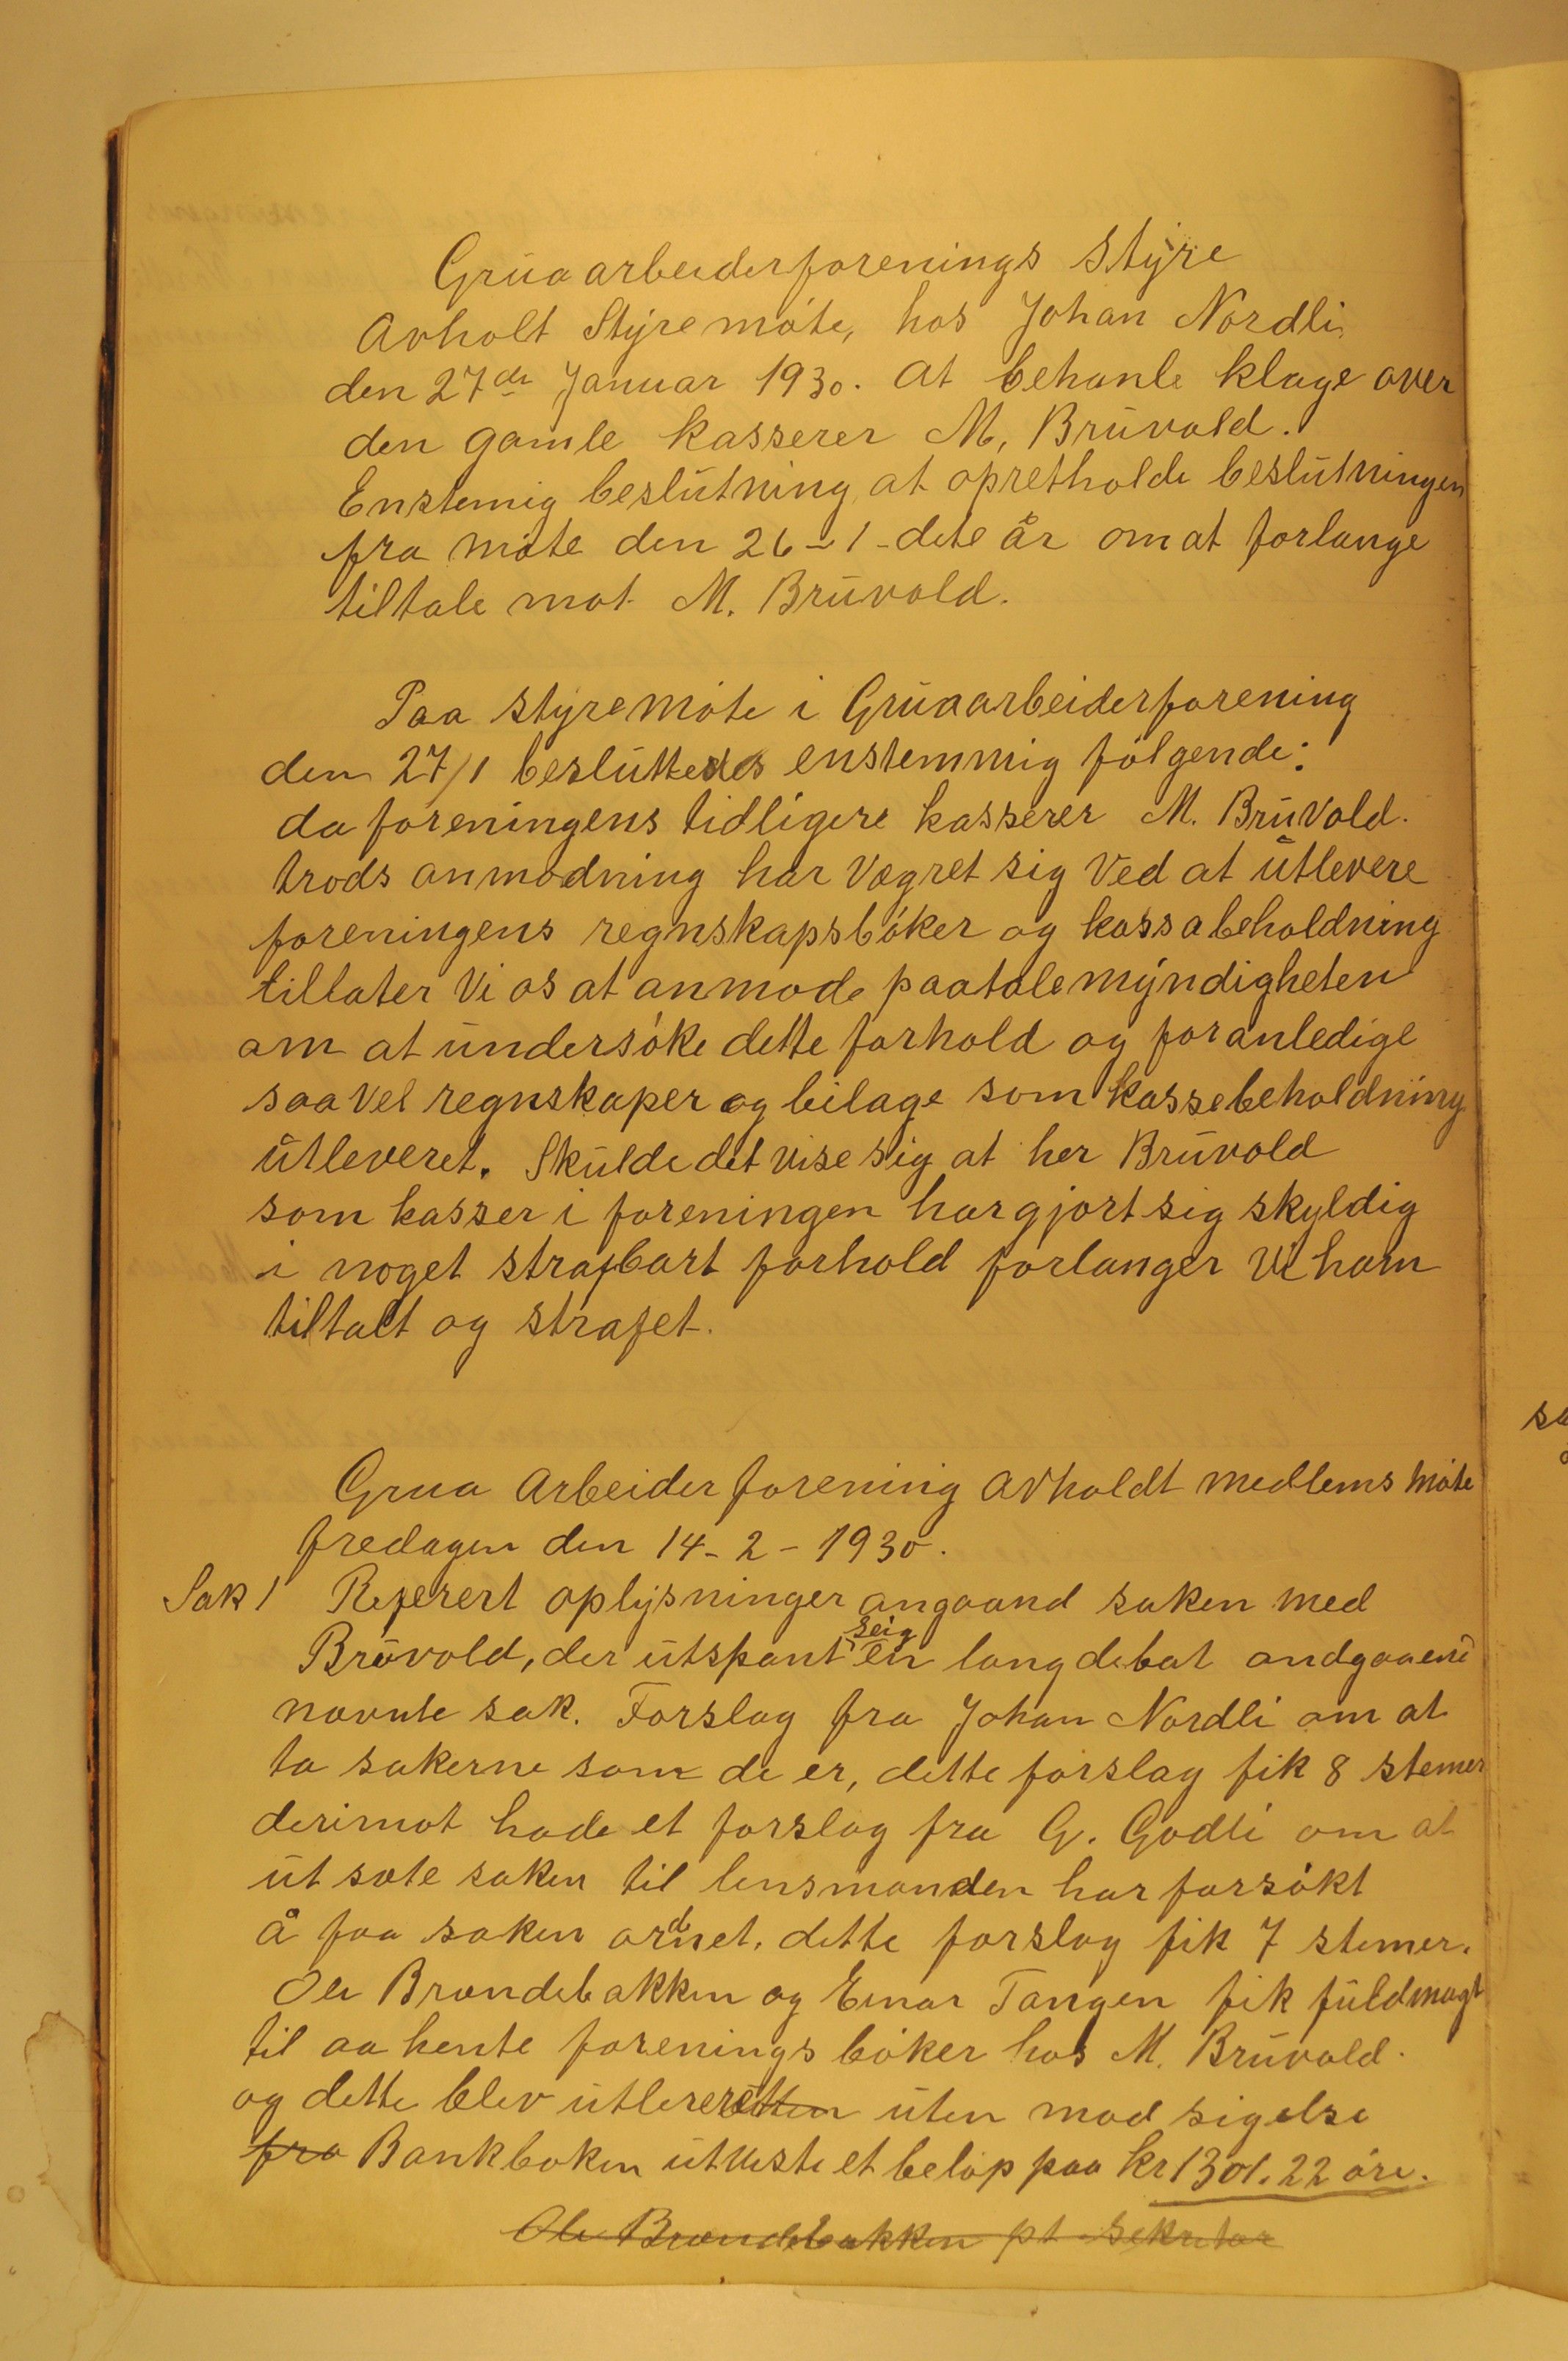 Gruaarbeiderforenings Styre
Avholt Styremöte, hos Johan Nordli
den 27de Januar 1930. at behanle klage over
den gamle kasserer M, Bruvold.
Enstemig beslutning at opretholde beslutningen
fra möte den 26-1-dete år om at forlange
tiltale mot M. Bruvold.
Paa styremöte i Gruaarbeiderforening
den 27/1 besluttedes enstemmig fölgende:
da foreningens tidligere kasserer M. Bruvold.
trods anmodning har Vægret sig Ved at utlevere
foreningens regnskapsböker og kassabeholdning
tillater Vi os at anmode paatalemyndigheten
om at undersöke dette forhold og foranledige
saavel regnskaper og bilage som kassebeholdning
utleveret. Skulde det vise sig at her Bruvold
som kasser i foreningen har gjort sig skyldig
i noget strafbart forhold forlanger Vi ham
tiltalt og strafet.
Grua Arbeiderforening avholdt medlemsmöte
fredagen den 14-2-1930.
Sak 1 Referert oplysninger angaand saken med
Bruvold, der utspant seig en lang debat andgaaend
nævnte sak. Forslag fra Johan Nordli om at
ta sakerne som de er, dette forslag fik 8 stemer
derimot hade et forslag fra G. Godli om at
utsæte saken til lensmanden har forsökt
å faa saken ordnet. dette forslag fik 7 stemer.
Ole Brændebakken og Einar Tangen fik fuldmagt
til aa hente forenings böker hos M. Bruvold.
og dette blev utlereretten uten mod sigelse
fra Bankboken utviste et belöp paa kr 1301.22 öre.
Ole Brændebakken pt sekretær